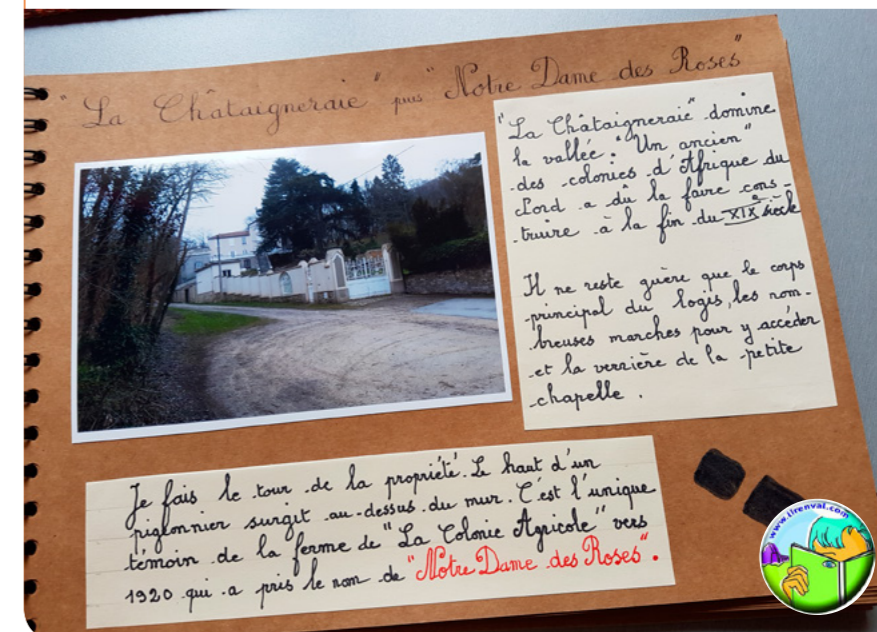 "La Châtaigneraie" puis "Notre Dame des Roses"
"La Châtaigneraie" domine
la vallée. "Un ancien"
des colonies d'Afrique du
Nord a dû la faire cons-
truire à la fin du XIXe siècle
Il ne reste guère que le corps
principal du logis, les nom-
breuses marches pour y accéder
et la verrière de la petite
chapelle.
Je fais le tour de la propriété. Le haut d'un
pigeonnier surgit au-dessus du mur. C'est l'unique
témoin de la ferme de "La Colonie Agricole" vers
1920 qui a pris le nom de "Notre Dame des Roses".
www.lirenval.com